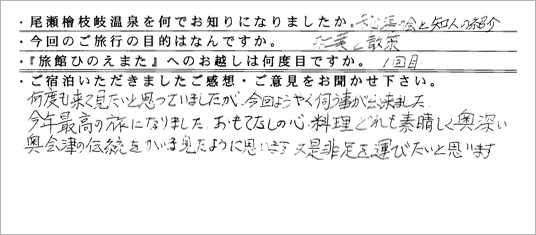 ・尾瀬檜枝岐温泉を何でお知りになりましたか。 の会と知人の紹介
・今回のご旅行の目的はなんですか。 紅葉と散策
・『旅館ひのえまた』へのお越しは何度目ですか。 1回目
・ご宿泊いただきましたご感想・ご意見をお聞かせ下さい。
何度も来て見たいと思っていましたが、今回ようやく伺う事が出来ました
今年最高の旅になりました おもてなしの心、料理どれも素晴しく奥深い
奥会津の伝統をかいま見たように思います 又是非足を運びたいと思います